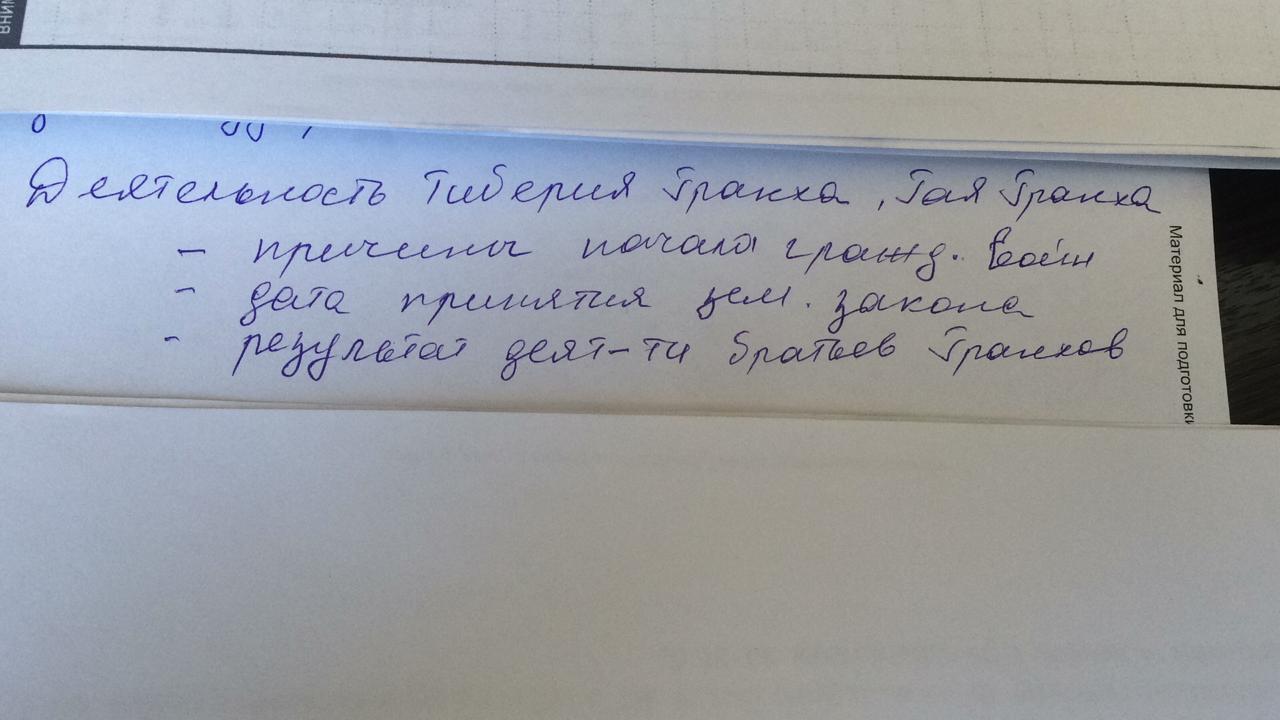 Деятельность Тиберия Гракха, Гая Гракха
- причины начала гражд. войн
- дата принятия зем. закона
- результат деят-ти братьев Гракхов
Материал для подготовки